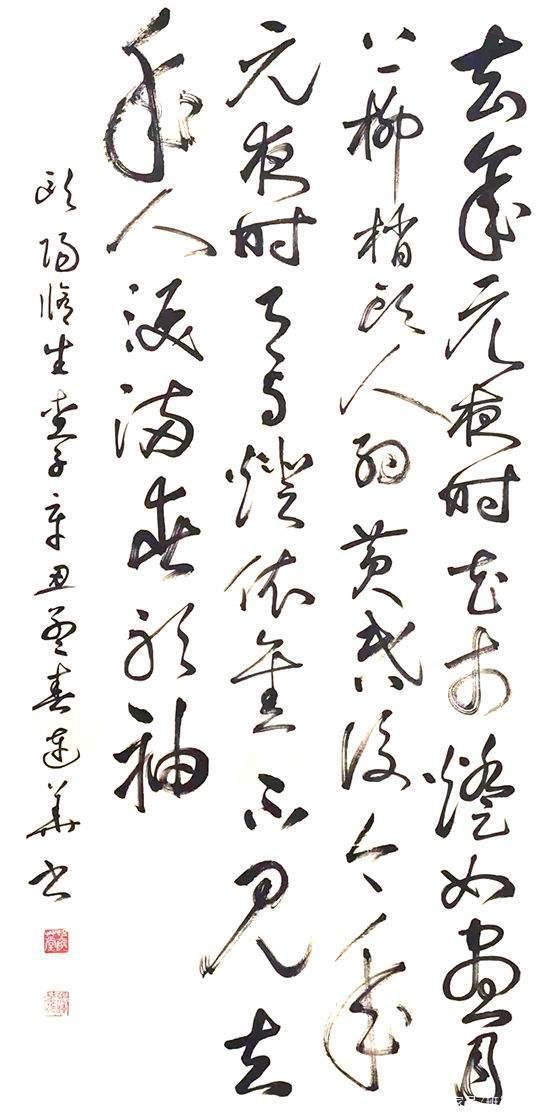 去年元夜时花市燈如畫月
上柳梢头人约黄昏後今年
元夜时月与燈依舊不见去
年人淚满春衫袖
欧阳脩生查子辛丑孟春建華书